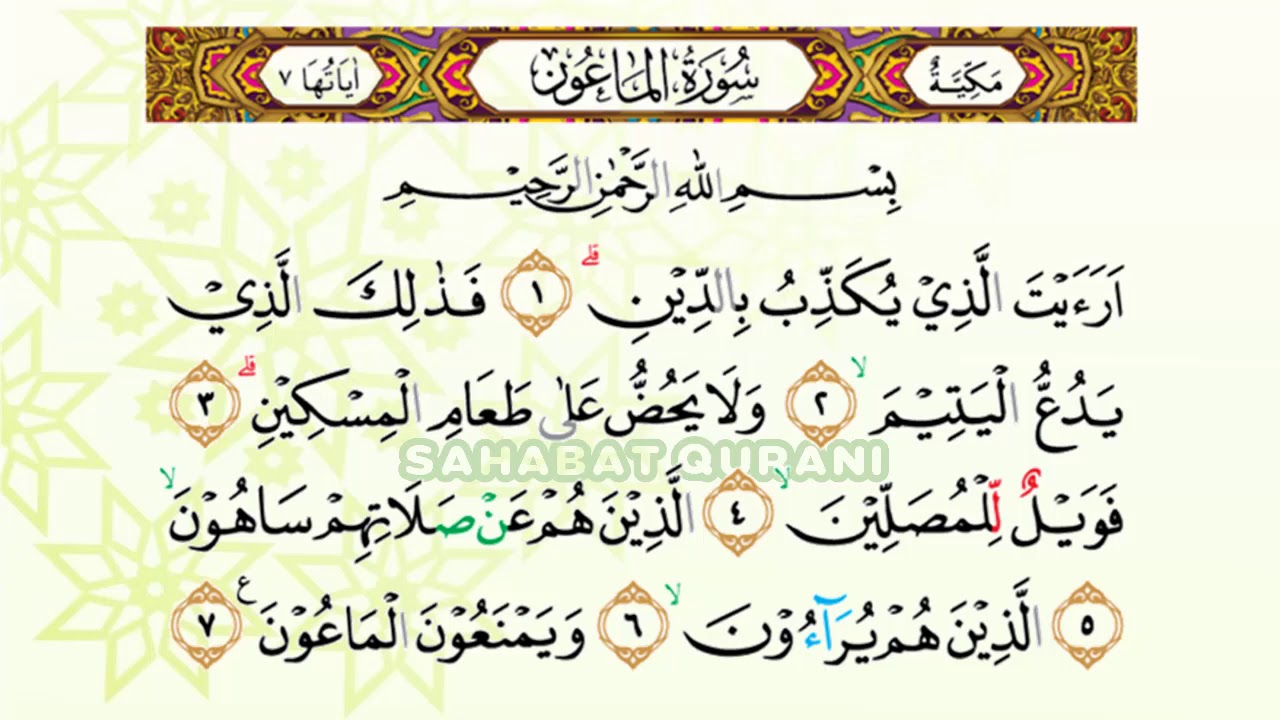 مَكِّيَّةٌ سُورَةُ الْمَاعُونِ اٰيَاتُهَا ٧
بِسْمِ اللّٰهِ الرَّحْمٰنِ الرَّحِيْمِ
اَرَءَيْتَ الَّذِيْ يُكَذِّبُ بِالدِّيْنِۗ ١ فَذٰلِكَ الَّذِيْ
يَدُعُّ الْيَتِيْمَۙ ٢ وَلَا يَحُضُّ عَلٰى طَعَامِ الْمِسْكِيْنِۗ ٣
SAHABAT QURANI
فَوَيْلٌ لِّلْمُصَلِّيْنَۙ ٤ الَّذِيْنَ هُمْ عَنْ صَلَاتِهِمْ سَاهُوْنَۙ
٥ الَّذِيْنَ هُمْ يُرَآءُوْنَۙ ٦ وَيَمْنَعُوْنَ الْمَاعُوْنَ ࣖ ٧